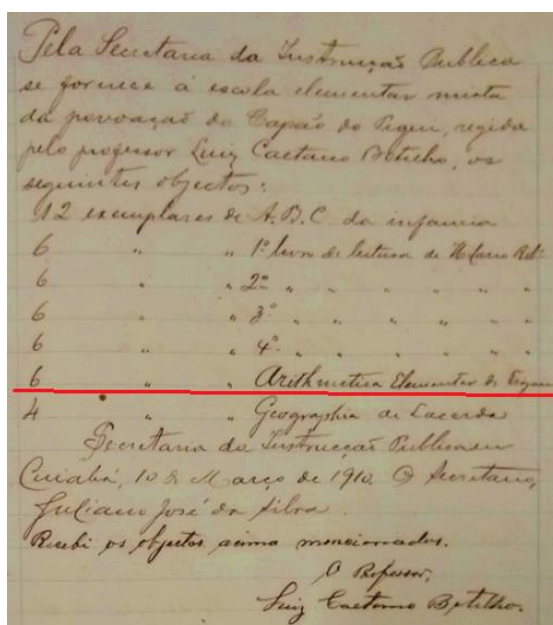 Pela Secretaria da Instrucção Publica
se fornece á escola elementar mixta
da povoação do Capão do Piqui, regida
pelo professor Luiz Caetano Botelho, os
seguintes objectos:
12 exemplares de A.B.C. da infancia
6 " " 1º livro de leitura de Hilario Rib.º
6 " " 2º " " " " "
6 " " 3º " " " " "
6 " " 4º " " " " "
6 " " Arithmetica Elementar de
4 " " Geographia de Lacerda
Secretaria da Instrucção Publica em
Cuiabá, 10 de Março de 1910. O Secretario,
Juliano José da Silva.
Recebi os objectos acima mencionados.
O Professor,
Luiz Caetano Botelho.